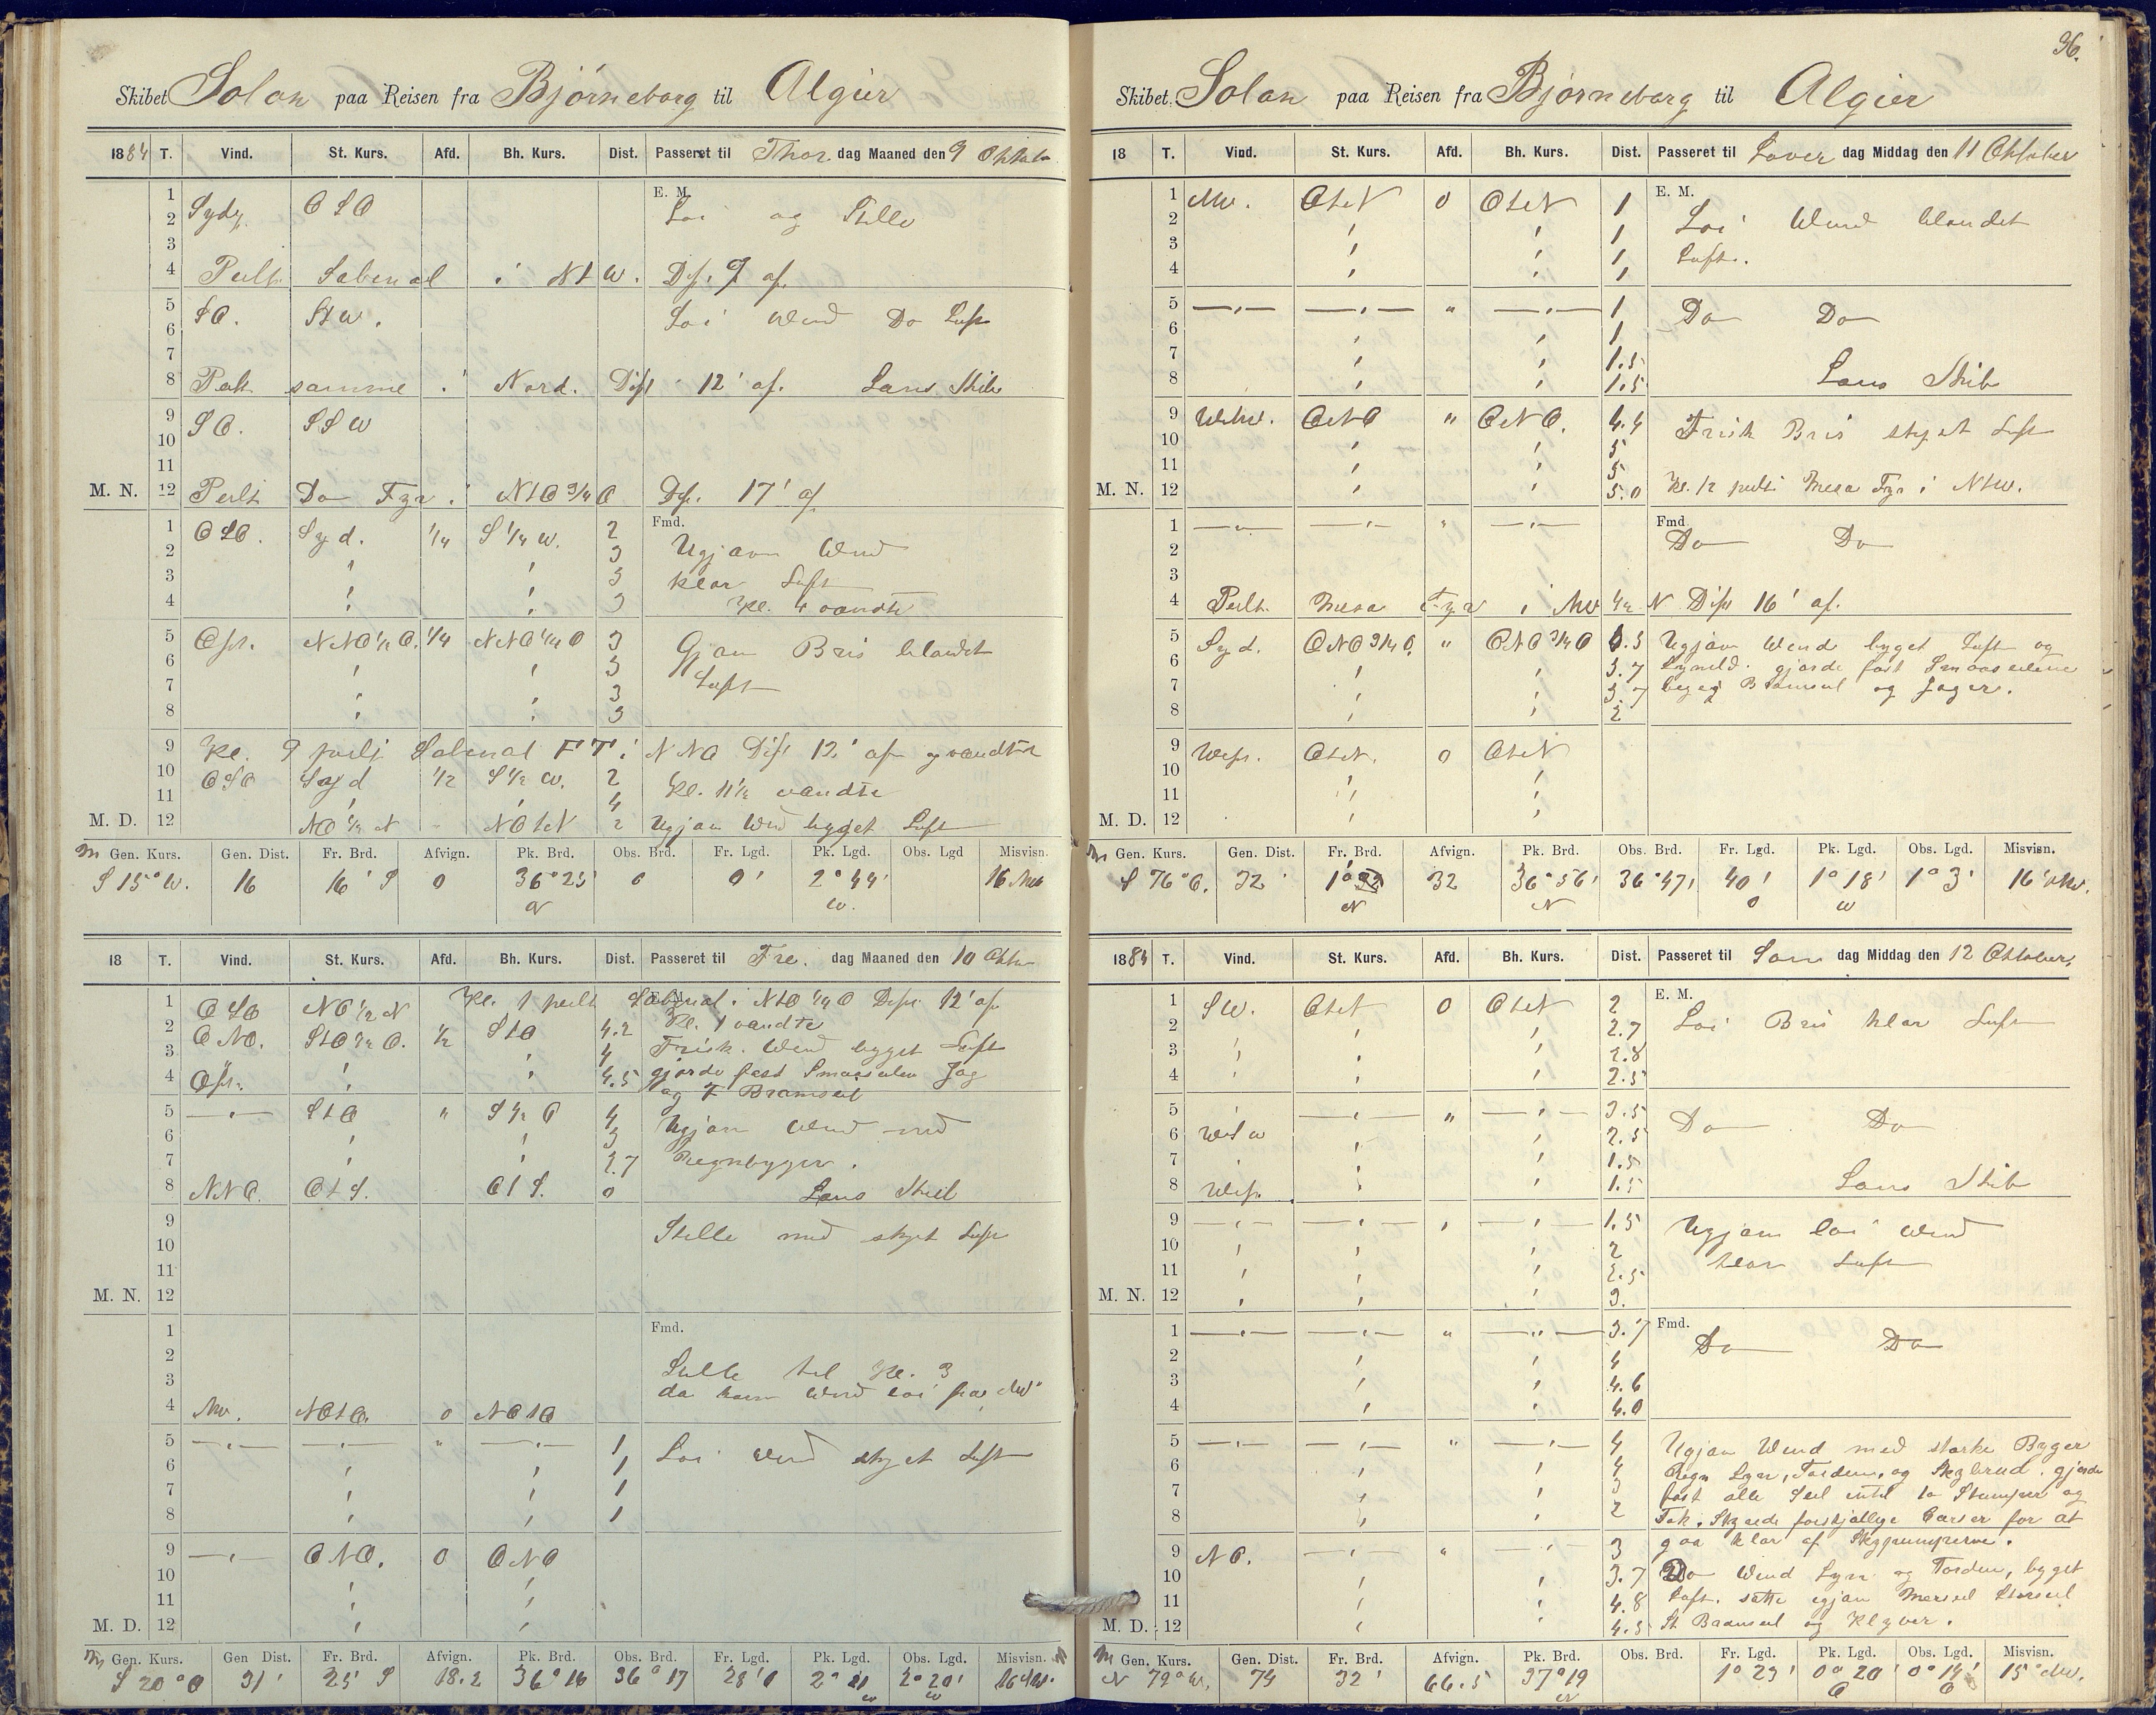 Skibet Solon paa Reisen fra Bjørneborg til Algier
1884 T. Vind. St. Kurs. Afd. Bh. Kurs. Dist. Passeret til Thors dag Maaned den 9 Oktob
E. M.
1 Sydg. OSO Loi og Stille
2
3
4 Peilt Sabinal i NtW. Dist. 9' af.
5 SO. StW. Loi Wind Do Luft
6
7
8 Peilt samme i Nord. Dist 12' af. Læns Skib
9 SO. SSW
10
11
M. N. 12 Peilt Do Fyr i NtO 3/4 O Dist. 17' af
Fmd.
1 OSO. Syd. 1/4 S 1/4 W. 2 Ugjævn Wind
2 3
3 " " 3 klar Luft
4 " " 3 Kl. 4 vendte
5 Ost. NNO 1/2 O. 1/4 NNO 1/4 O 3 Gjævn Bris blandet
6 " " 3 Luft
7 " " 3
8 " " 3
9 Kl. 9 peilt Sabinal FT i NNO Dist 12' af og vendte
10 OSO Syd 1/2 S 1/2 W. 2 Kl. 11 1/2 vendte
11 " " 4
M. D. 12 NO 1/2 N - NOtN 2 Ugjævn Wind bygget Luft
m Gen. Kurs. Gen. Dist. Fr. Brd. Afvign. Pk. Brd. Obs. Brd. Fr. Lgd. Pk. Lgd. Obs. Lgd Misvisn.
S 15° W. 16 16' S 0 36° 25' 0 0' 2° 44' 16 NW
N W.
18 T. Vind. St. Kurs. Afd. Bh. Kurs. Dist. Passeret til Fre. dag Maaned den 10 Oktbr
1 OSO NO 1/2 N Kl. 1 peilt Sabinal i NtO 1/4 O Dist. 12' af
2 ONO. StO 1/2 O. 1/2 StO 4.2 Kl. 1 vendte
3 " " 4 Frisk. Wind bygget Luft
4 Ost. " " 4.5 gjorde fast Smaaseilen Jag
og F Bramseil
5 —"— StO " S 1/2 O 4 Ugjævn Wind med
6 " " 3
7 " " 2.7 Regnbyger.
8 NNO. OtS. OtS. 0 Læns Skib
9 Stille med skyet Luft
10
11
M. N. 12
Fmd.
1
2 Stille til Kl. 3
3 da kom Wind loi fra NW
4 NW. NOtO. 0 NOtO
5 —"— —"— " —"— 1 Loi Wind skyet Luft
6 " " 1
7 " " 1
8 " " 1
9 —"— ONO. 0 ONO
10 " "
11 " "
M. D. 12 " "
m Gen. Kurs. Gen Dist. Fr. Brd. Afvign. Pk. Brd. Obs. Brd. Fr. Lgd. Pk. Lgd. Obs. Lgd. Misvisn.
S 20° O 31' 25' S 18.2 36° 16 36° 17 23' O 2° 21 2° 20' 16 NW.
W W
96.
Skibet. Solon paa Reisen fra Bjørneborg til Algier
18 T. Vind. St. Kurs. Afd. Bh. Kurs. Dist. Passeret til Løver dag Middag den 11 Oktober
E. M.
1 NW. OtN 0 OtN 1
2 " " 1 Loi Wind blandet
3 " " 1 Luft.
4 " " 1
5 —"— —"— " —"— 1 Do Do
6 " " 1
7 " " 1.5
8 " " 1.5 Læns Skib
9 WNW. OtNO " OtNO. 4.4 Frisk Bris skyet Luft
10 " " 5
11 " " 5
M. N. 12 " " 5.0 Kl. 12 peilt Mesa Fyr i NtW.
Fmd
1 —"— —"— " —"— Do Do
2
3
4 Peilt. Mesa Fyr i NW 1/2 N Dist 16' af.
5 Syd. ONO 3/4 O. " ONO 3/4 O 3.5 Ugjævn Wind bygget Luft og
6 " " 3.7 Lynild. gjorde fast Smaaseilene
7 " " 3.7 begg Bramseil og Jager.
8 " " 2
9 West. OtN. 0 OtN
10 " "
11 " "
M. D. 12 " "
m Gen. Kurs. Gen. Dist. Fr. Brd. Afvign. Pk. Brd. Obs. Brd. Fr. Lgd. Pk. Lgd. Obs. Lgd. Misvisn.
S 76° O. 32' 32 36° 56' 36° 47' 40' 1° 18' 1° 3' 16° NW.
N N O W
1884 T. Vind. St. Kurs. Afd. Bh. Kurs. Dist. Passeret til Søn dag Middag den 12 Oktober.
E. M.
1 SW. OtN 0 OtN 2
2 " " 2.7 Loi Bris klar Luft
3 " " " 2.8
4 " " " 2.5
5 " —"— " —"— 3.5 Do Do
6 WSW " " 2.5
7 " " " 1.5
8 West. " " 1.5 Læns Skib
9 —"— —"— " —"— 1.5 Ugjævn loi Wind
10 " " " 2
11 " " " 2.5 klar Luft
M. N. 12 " " " 3.
Fmd.
1 —"— —"— " —"— 3.7 Do Do
2 " " 4
3 " " 4.6
4 " " 4.0
5 —"— —"— " —"— 4 Ugjævn Wind med stærke Byger
6 " " 4 Regn Lyn, Torden, og Skybrud. gjorde
7 " " 3 fast alle Seil intil to Stumper og
8 " " 2 Fok. Styrede forskjellige Carser for at
9 NO. —"— " —"— 3 gaa klar af Skypumperne.
10 " " 3.7 Do Wind Lyn og Torden, bygget
11 " " 4.8 Luft. satte igjæn Merseil Storseil
M. D. 12 " " 4.5 St Bramseil og Klyver.
m Gen. Kurs. Gen. Dist. Fr. Brd. Afvign. Pk. Brd. Obs. Brd. Fr. Lgd. Pk. Lgd. Obs. Lgd. Misvisn.
N 79° W. 74 32' 66.5 37° 19 1° 23' 0° 20' 0° 14' 15° NW.
N O O